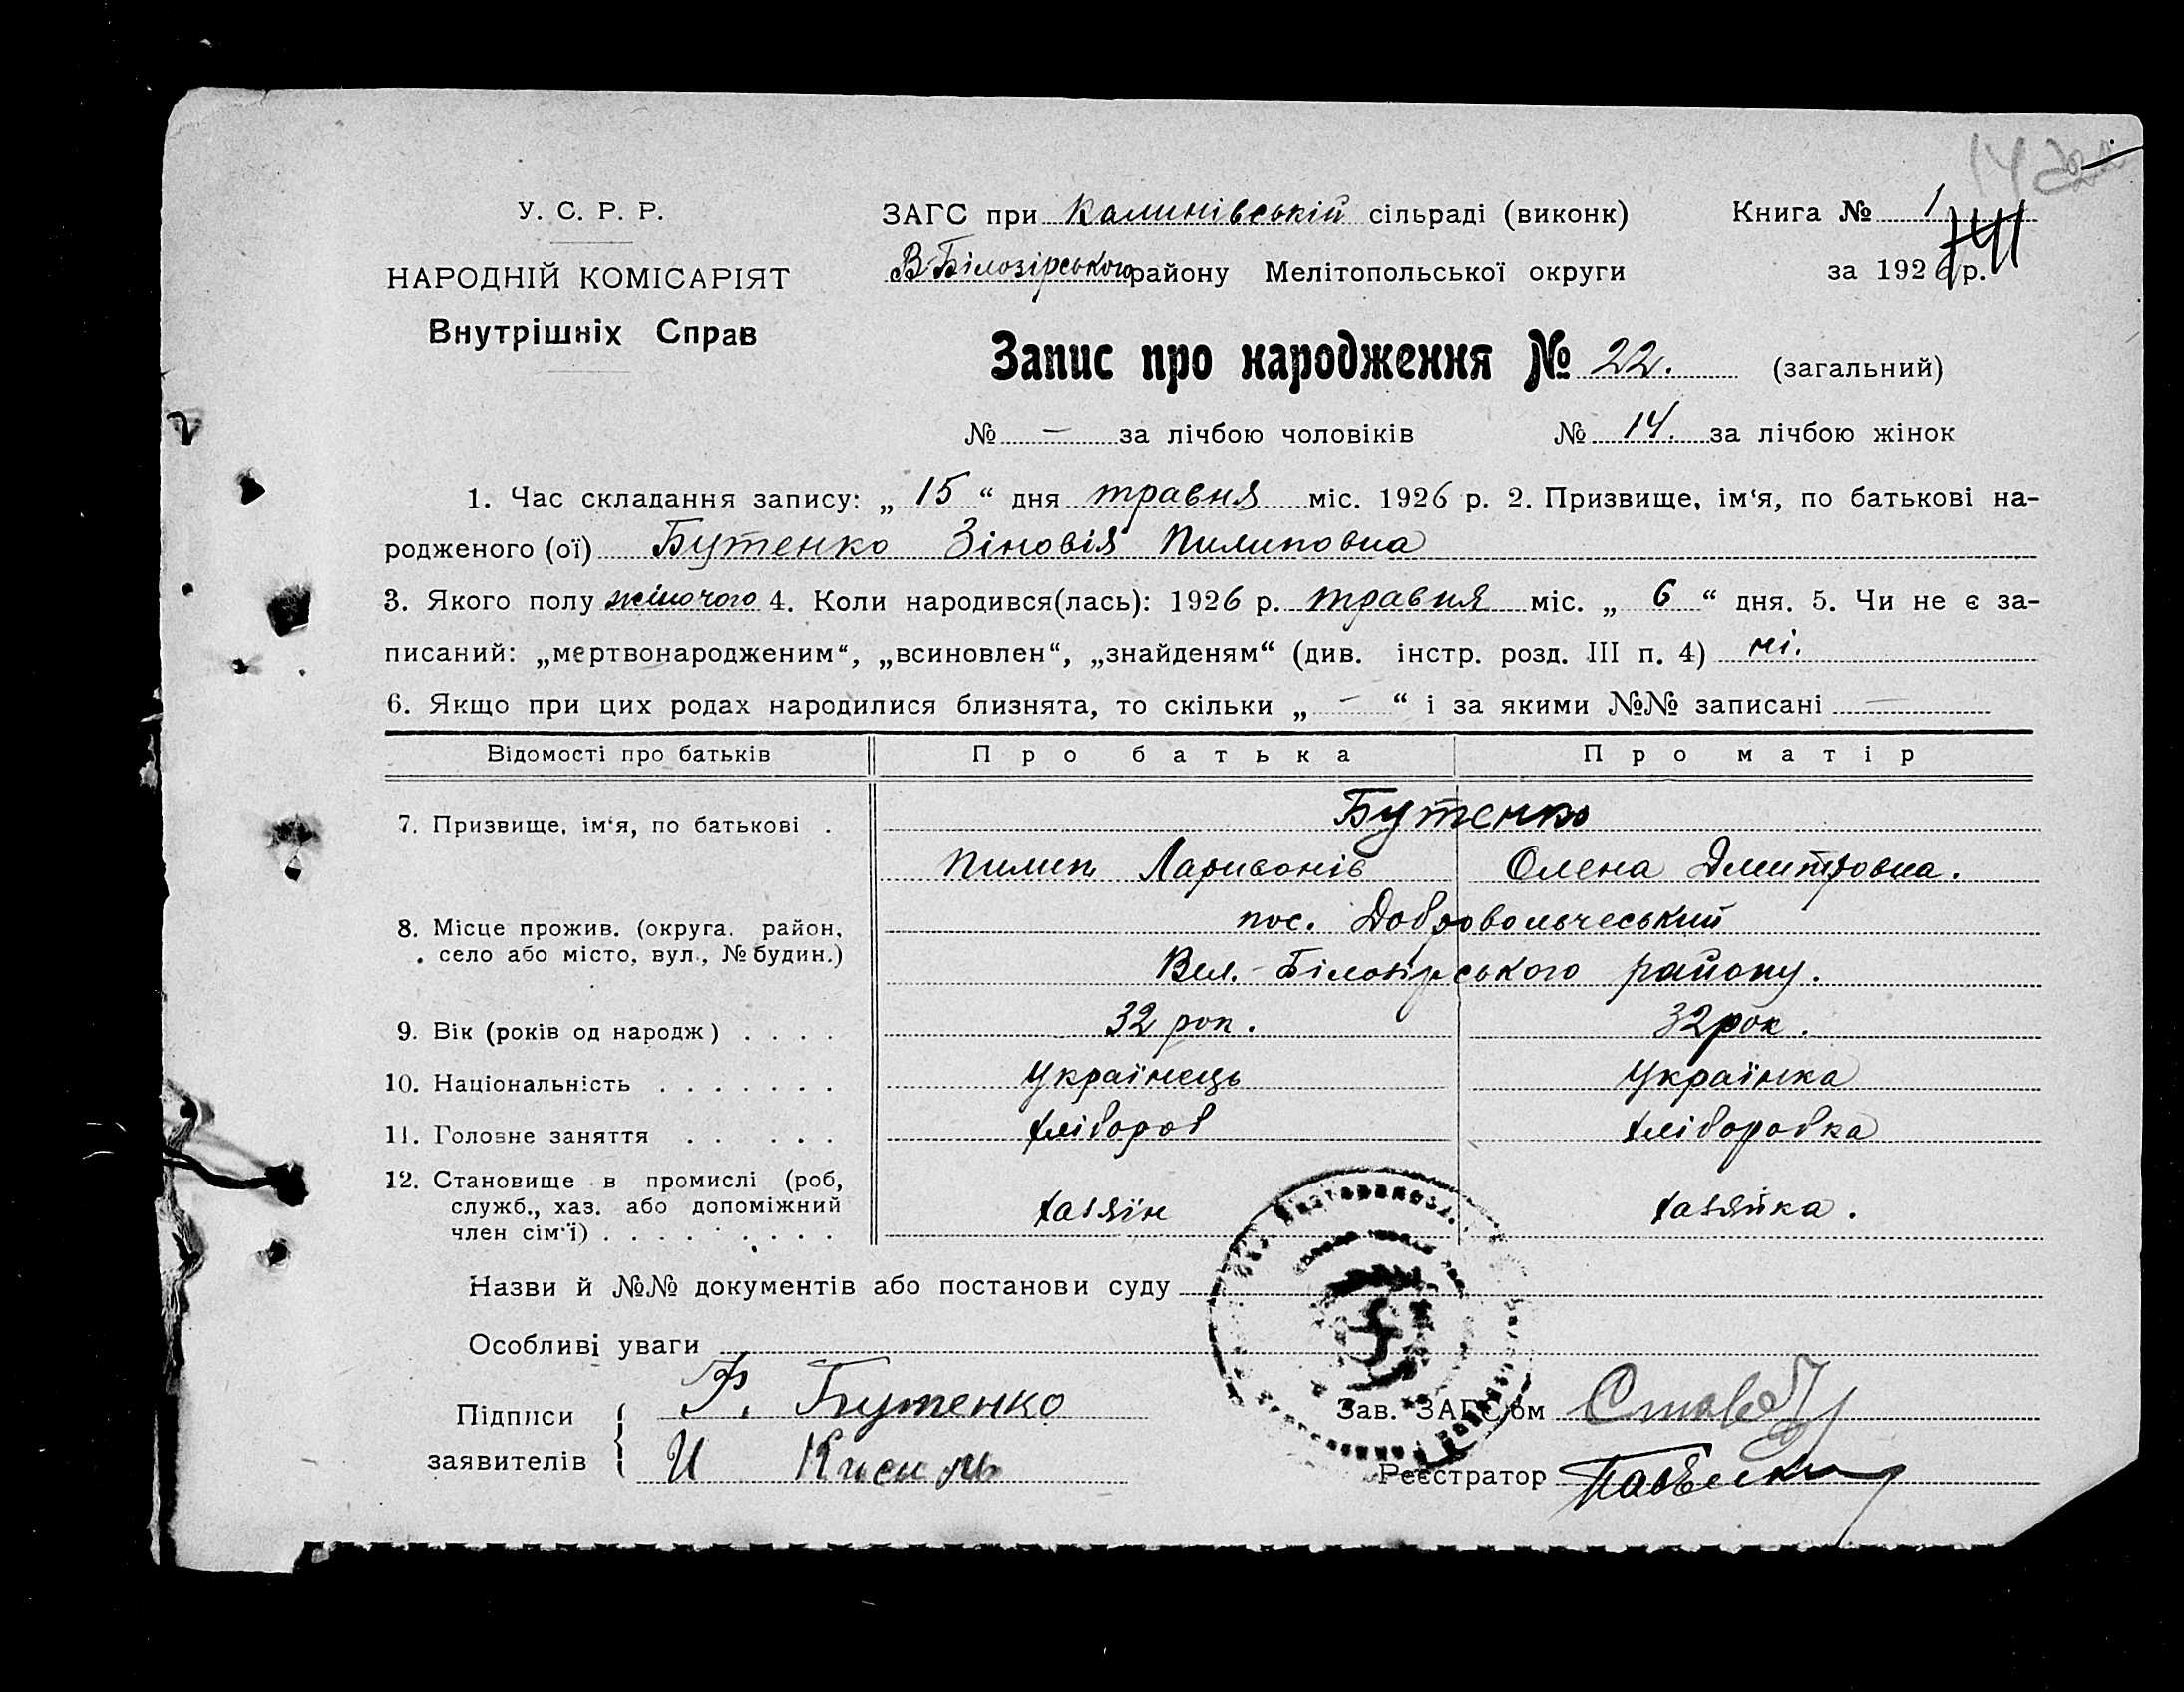 14
У. С. Р. Р.
ЗАГС при Калинівській сільраді (виконк)
Книга № 1
НАРОДНІЙ КОМІСАРІЯТ
В-Білозірського району Мелітопольської округи
за 1926 р.
Внутрішніх Справ
Запис про народження № 22. (загальний)
№ — за лічбою чоловіків № 14. за лічбою жінок
1. Час складання запису: „ 15 “ дня травня міс. 1926 р. 2. Призвище, ім‘я, по батькові на-
родженого (ої) Бутенко Зіновія Пилиповна
3. Якого полу жіночого 4. Коли народився(лась): 1926 р. травня міс. „ 6 “ дня. 5. Чи не є за-
писаний: „мертвонародженим“, „всиновлен“, „знайденям“ (див. інстр. розд. III п. 4) ні.
6. Якщо при цих родах народилися близнята, то скільки „ — “ і за якими №№ записані —
Відомості про батьків Про батька Про матір
7. Призвище, ім‘я, по батькові . Бутенко
Пилип Ларивонів Олена Дмитровна.
8. Місце прожив. (округа, район, пос. Добровольчеський
село або місто, вул., № будин.) Вел.-Білозірського району.
9. Вік (років од народж) . . . . 32 рок. 32 рок.
10. Національність . . . . . . . Українець Українка
11. Головне заняття . . . . . хлібороб хліборобка
12. Становище в промислі (роб,
служб., хаз. або допоміжний хазяїн хазяйка.
член сім‘ї) . . . . . . . .
Назви й №№ документів або постанови суду
Особливі уваги
Підписи Ф. Бутенко
Зав. ЗАГС‘ом
заявителів И Кисиль
Реєстратор